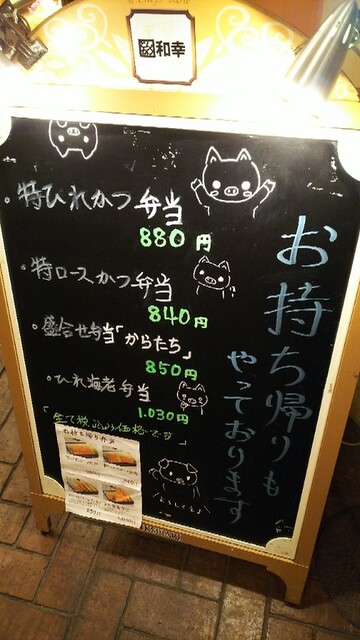 和幸
お持ち帰りも
やっております
・特ひれかつ弁当
880円
・特ロースかつ弁当
840円
・盛合せ弁当「からたち」
850円
・ひれ海老弁当
1.030円
「全て税込みの価格です」
お持ち帰り弁当